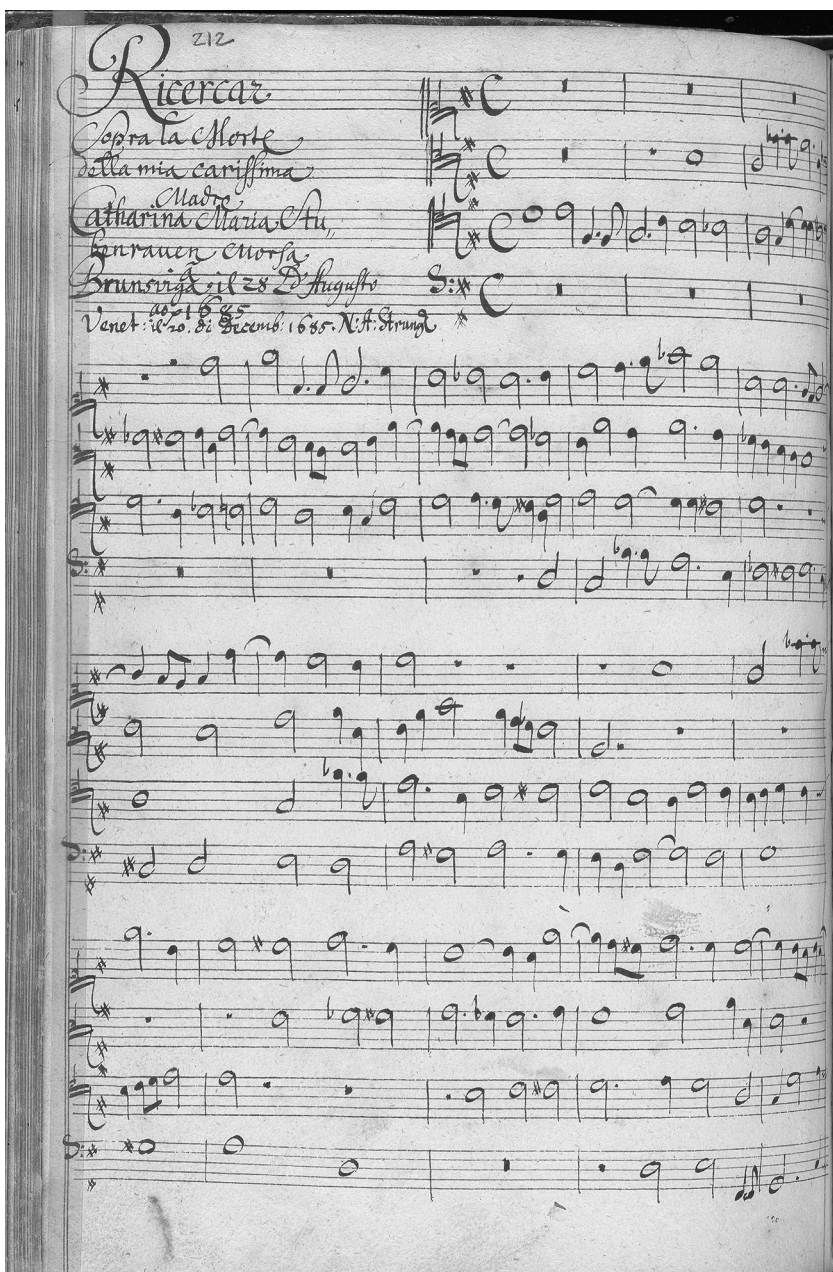 212
Ricercar
Sopra la Morte
della mia carissima
Madre
Catharina Maria Stu„
benrauen Morsa
Brunsviga il 28 D'Augusto
ao 1685
Venet: il 20. di Decemb: 1685. N: A: Strungk